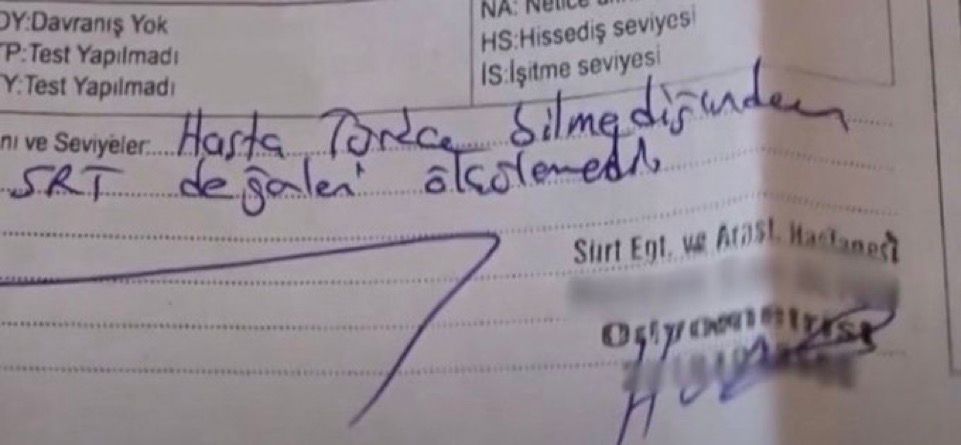 DY:Davranış Yok
TP:Test Yapılmadı
Y:Test Yapılmadı
NA: Netice
HS:Hissediş seviyesi
İS:İşitme seviyesi
nı ve Seviyeler: Hasta Türkçe bilmediğinden
SRT değerleri ölçülemedi.
Siirt Eğt. ve Araşt. Hastanesi
Odyometrist